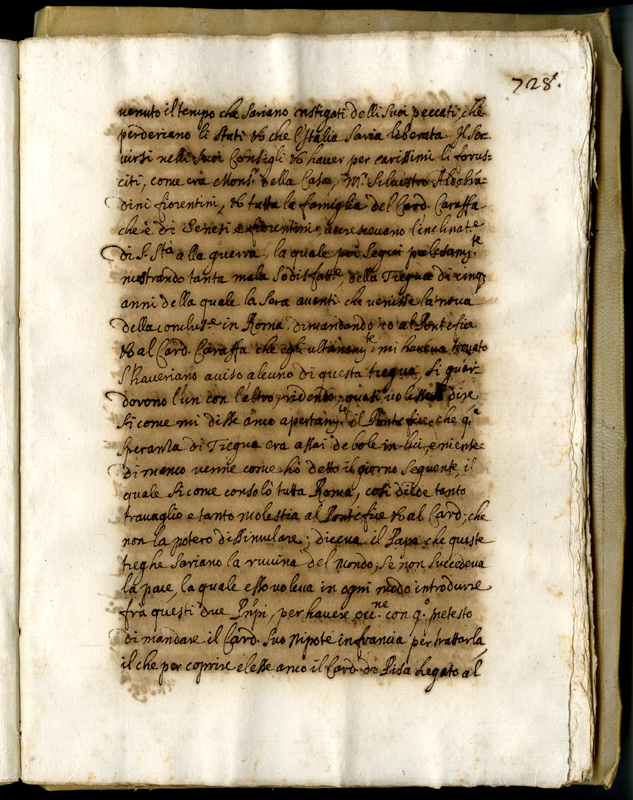 728.
venuto il tempo che sariano castigati delli suoi peccati, che
perderiano li stati & che l'Italia saria liberata. Il ser-
virsi nelli suoi Consigli & haver per carissimi li forus-
citi, come era Mons.r della Casa, M.r Silvestro Aldobra-
dini fiorentini, & tutta la famiglia del Card. Caraffa
che è di Senesi e fiorentini, accrescevano l'inclinat.e
di S. Stà alla guerra, la quale poi seguì palesam.te
mostrando tanta mala sodisfatt.e della Tregua di cinq
anni della quale la sera avanti che venisse la nova
della conclus.e in Roma, dimandando io al Pontefice
& al Card. Caraffa che egli ultimam.te mi haveva trovato
s'haveriano aviso alcuno di questa tregua, si guar-
dorono l'un con l'altro, ridendo, quasi volesse dire
si come mi disse anco apertam.te il Pontefice, che q.a
speranza di Tregua era assai debole in lui, e niente
di manco venne come hò detto il giorno seguente, il
quale si come consolò tutta Roma, così diede tanto
travaglio e tanto molestia al Pontefice & al Card: che
non la potero dissimulare; diceva il Papa che queste
treghe sariano la ruvina del mondo, se non succedeva
la pace, la quale esso voleva in ogni modo introdurre
frà questi due Pnpi, per havere occ.ne con q.o pretesto
di mandare il Card. suo Nipote in francia per trattarla
il che per coprire elesse anco il Card. di Pisa Legato al